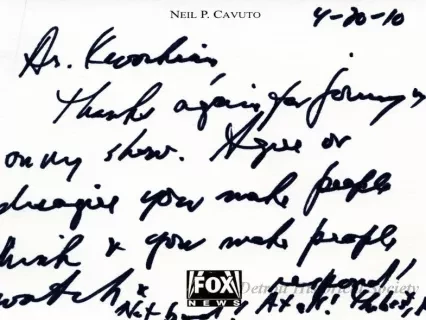 NEIL P. CAVUTO
4-20-10
Dr. Kevorkian,
Thanks again for joining us
on my show. Agree or
disagree you make people
think & you make people
watch & respond!
FOX
NEWS
Detroit Historical Society
Not bad! At all! The best,